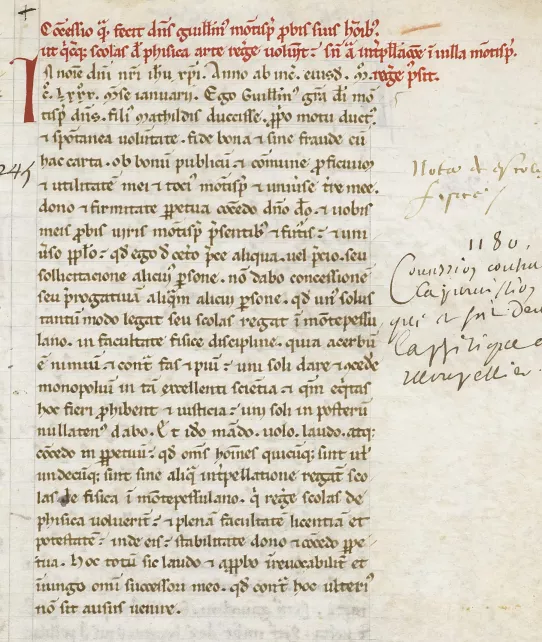 Cōcessio q̄. fecit dn̄s guillm̄' mōtisp̄. p̱bis suis hōib'.
ut q̄cq; scolas d̄ phisica arte reḡe volūt. sn̄ ā int̄pllac̄ōe ī villa mōtisp̄.
reḡe p̄sit.
In noīe dn̄i nr̄i ihū xp̄i. Anno ab inc̄. eiusd̄. ꝳ.
c̄. lxxx. m̄se ianuarii. Ego Guillm̄' gr̄a dī mō
tisp̄. dn̄s. fili' mathildis duccisse. ꝓpo motu duct'
⁊ spontanea voluntate. fide bona ⁊ sine fraude cū
hac carta. ob bonū publicū ⁊ cōmune ꝓficuum
⁊ utilitatē mei ⁊ toci' mōtisp̄. ⁊ uniũse t̄re mee.
dono ⁊ firmitate ꝑpetua cōcedo dn̄o d̄o. ⁊ uobis
meis ꝓbis viris mōtisp̄. p̄sentib' ⁊ fut̄is. ⁊ uni
ũso pp̄lo. qd̄ ego d̄ cet̄o p̄ce aliqua. uel p̄cio. seu
sollicitacione alicui' ꝑsone. nō dabo concessionē
seu p̄rogatiuā aliqᷓm alicui ꝑsone. qd̄ un' solus
tantū modo legat seu scolas regat ī mōtepessu
lano. in facultate fisice discipline. quia acerbū
ē nimiū ⁊ cont̄ fas ⁊ piū. uni soli dare ⁊ cc̄ede
monopoliū in tā excellenti sciētia ⁊ qm̄ eq̄tas
hoc fieri ꝓhibent ⁊ iusticia. uni soli in posterū
nullaten' dabo. Et iđo mādo. uolo. laudo. atq;
cōcedo in ꝑpetuū. qd̄ om̄s hoīnes quicūq; sunt ul'
undecūq; sint sine aliq̄ int̄pellatione regāt sco
las de fisica ī mōtepessulano. q̄ reḡe scolas de
phisica uoluerīt. ⁊ plenā facultatē licentiā et
potestatē. inde eis. stabilitate dono ⁊ cōcedo ꝑpe
tua. hoc totū sic laudo ⁊ app̱bo irreuocabilit̄ et
iniungo om̄i successori meo. qd̄ cont̄ hoc ulteri'
nō sit ausus uenire.
245
1180.